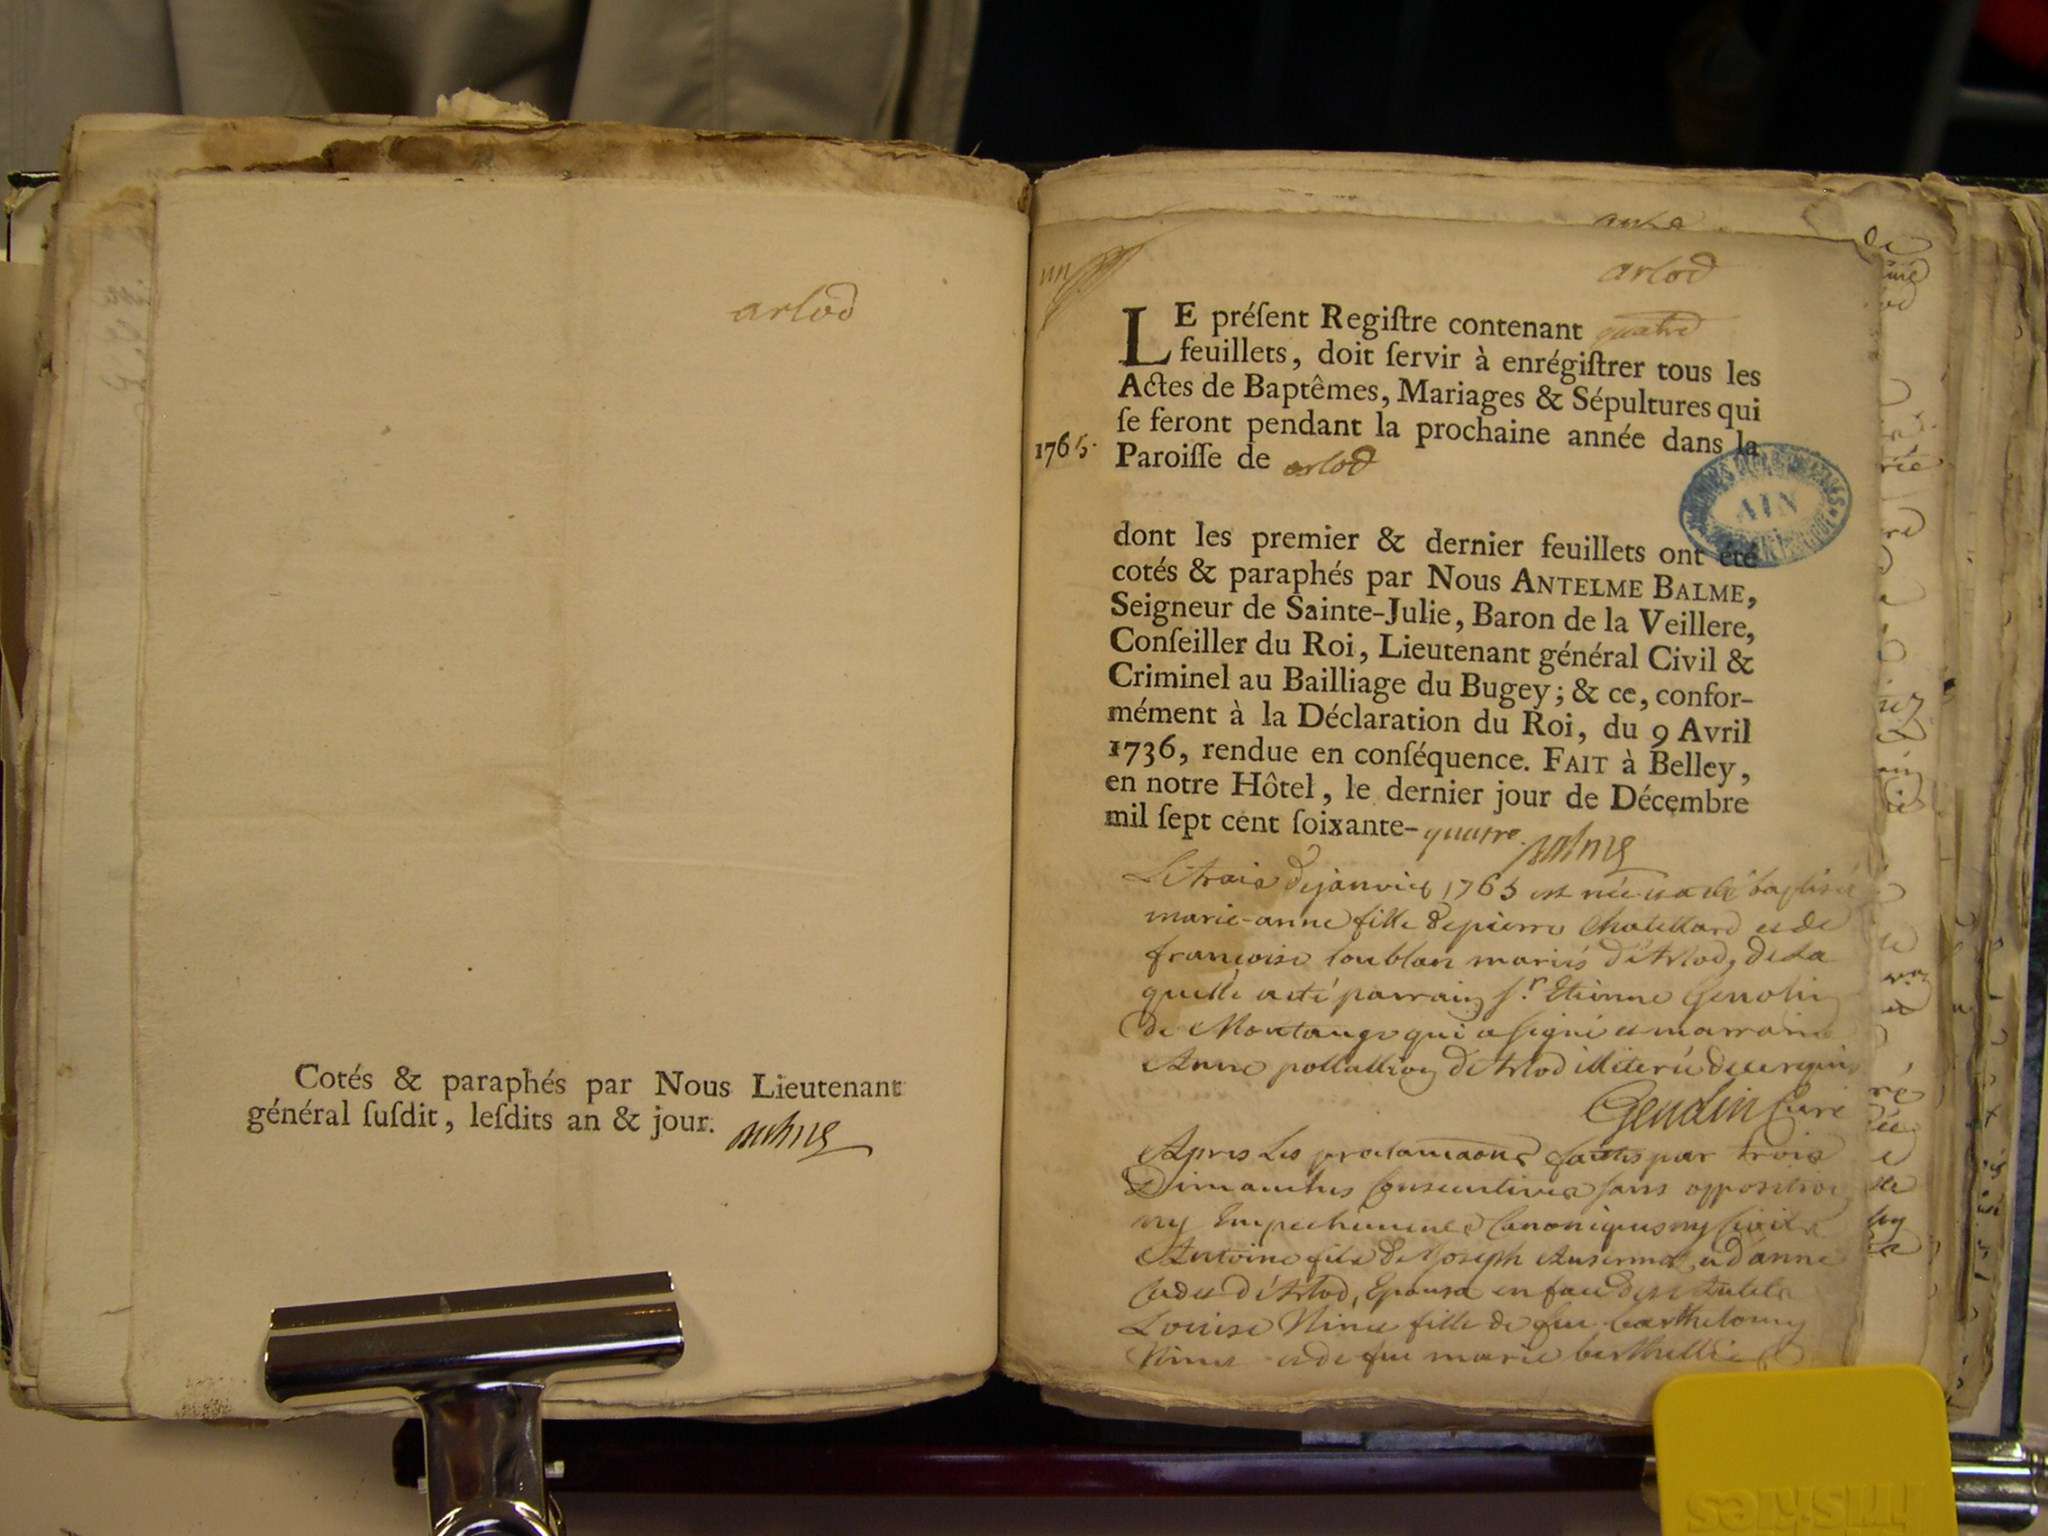 arlod
Cotés & paraphés par Nous Lieutenant
général ſuſdit, leſdits an & jour.
arlod
LE préſent Regiſtre contenant quatre
feuillets, doit ſervir à enrégiſtrer tous les
Actes de Baptêmes, Mariages & Sépultures qui
ſe feront pendant la prochaine année dans la
1765. Paroiſſe de arlod
AIN
dont les premier & dernier feuillets ont été
cotés & paraphés par Nous ANTELME BALME,
Seigneur de Sainte-Julie, Baron de la Veillere,
Conſeiller du Roi, Lieutenant général Civil &
Criminel au Bailliage du Bugey; & ce, confor-
mément à la Déclaration du Roi, du 9 Avril
1736, rendue en conſéquence. FAIT à Belley,
en notre Hôtel, le dernier jour de Décembre
mil ſept cent ſoixante-quatre. Balme
Le trois de janvier 1765 est née et a été baptisée
marie-anne fille de pierre Chatellard et de
francoise loublan mariés d'Arlod, de la
quelle a eté parrain Sr. Etienne
de Montange qui a signé et marraine
Anne d'Arlod illiterée de ce requis
Gendin Curé
Apres les proclamaons faittes par trois
Dimanches Consecutives sans opposition
ny Empechement Canoniques ny Civils
Antoine fils de Joseph Ansermet et d'anne
d'Arlod, Epousa en face des Autels
Louise Ninet fille de feu barthelomy
Ninet et de feu marie